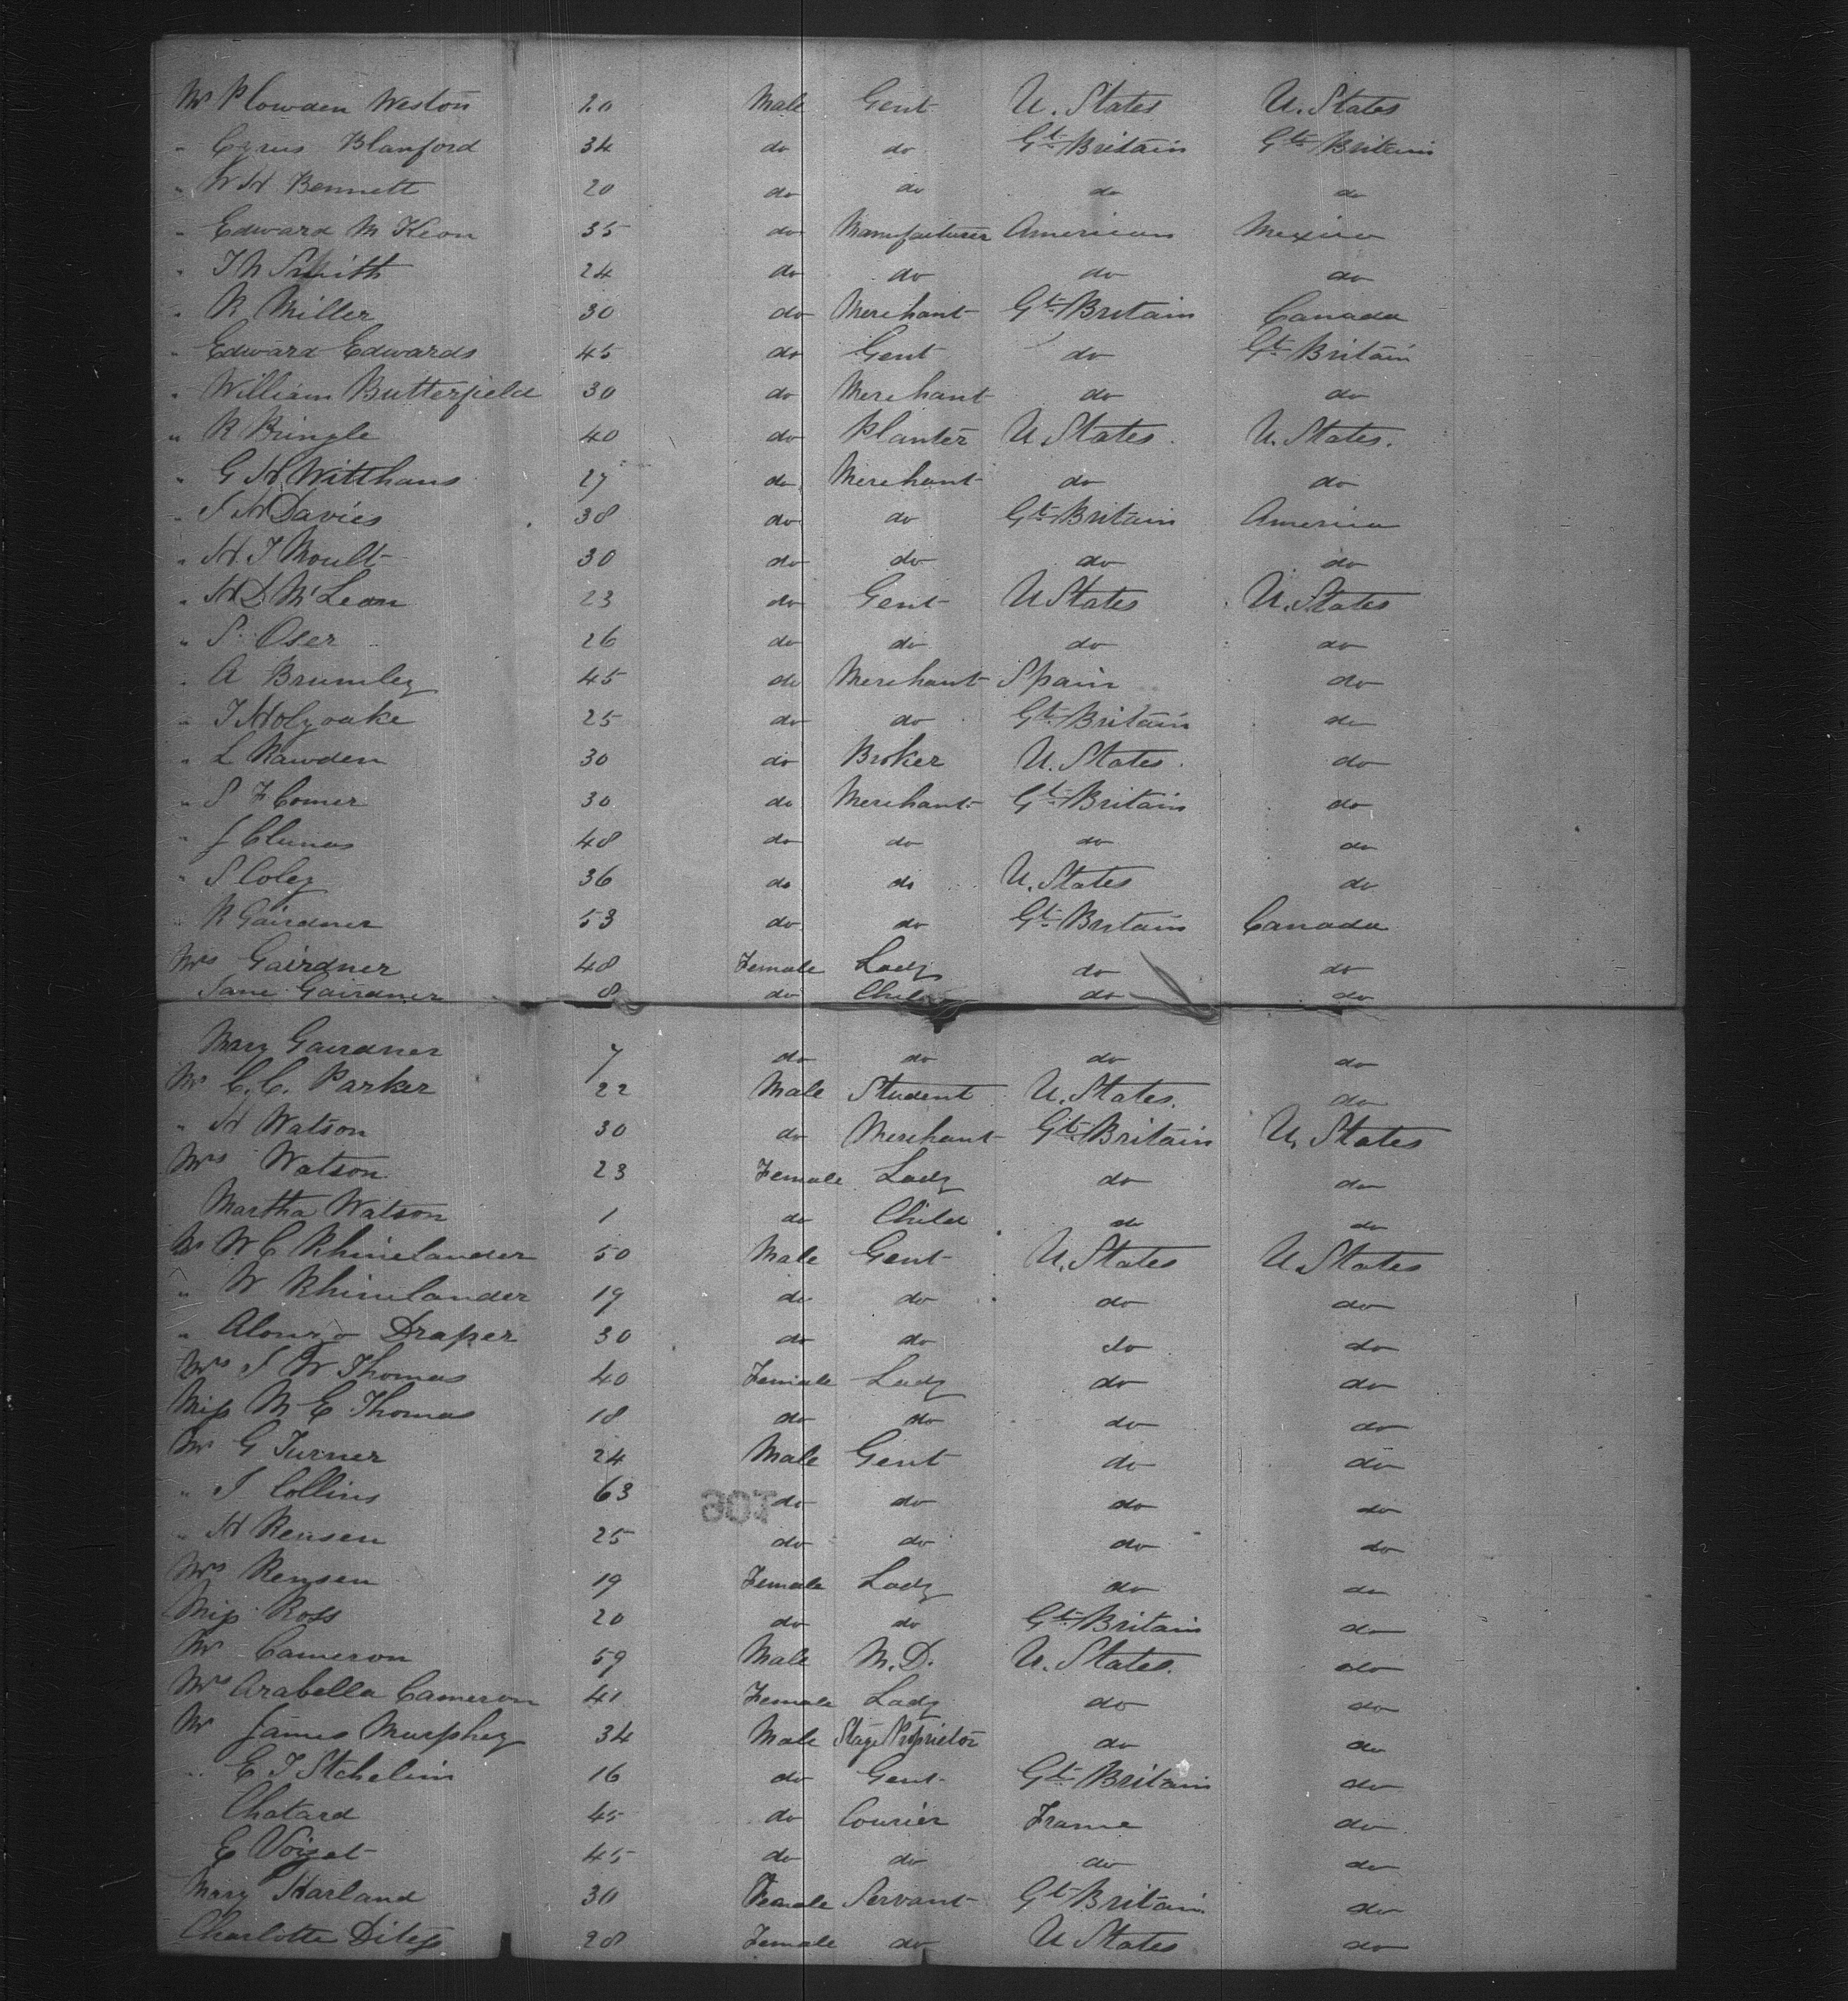 Mr Plowden Weston 20 Male Gent U. States U. States
" Cyrus Blanford 34 do do Gt. Britain Gt. Britain
" W H Bennett 20 do do do do
" Edward McKeon 35 do Manufacturer American Mexico
" J N Smith 24 do do do do
" R Miller 30 do Merchant Gt. Britain Canada
" Edward Edwards 45 do Gent do Gt. Britain
" William Butterfield 30 do Merchant do do
" R Pringle 40 do Planter U States. U. States.
" G H Witthaus 27 do Merchant do do
" S H Davies 38 do do Gt. Britain America
" H. J Moult 30 do do do do
" H D. McLean 23 do Gent U States U. States
" S. Oser 26 do do do do
" A Brumley 45 do Merchant Spain do
" J Holyoake 25 do do Gt. Britain do
" L Rawden 30 do Broker U. States. do
" S F Comer 30 do Merchant Gt. Britain do
" J Clunas 48 do do do do
" S Coley 36 do do U. States do
" R Gairdner 53 do do Gt. Britain Canada
Mrs Gairdner 48 Female Lady do do
Jane Gairdner 8 do Child do do
Mary Gairdner 7 do do do do
Mr C. C. Parker 22 Male Student U. States. do
" H Watson 30 do Merchant Gt. Britain U. States
Mrs Watson 23 Female Lady do do
Martha Watson 1 do Child do do
Mr W C Rhinelander 50 Male Gent U. States U. States
" W Rhinelander 19 do do do do
" Alonzo Draper 30 do do do do
Mrs S W Thomas 40 Female Lady do do
Miss M E Thomas 18 do do do do
Mr G Turner 24 Male Gent do do
" J Collins 63 do do do do
" H Rensen 25 do do do do
Mrs Rensen 19 Female Lady do do
Miss Ross 20 do do Gt. Britain do
Mr Cameron 59 Male M. D. U. States. do
Mrs Arabella Cameron 41 Female Lady do do
Mr James Murphey 34 Male Stage Proprietor do do
" E J Stehelin 16 do Gent Gt. Britain do
Chatard 45 do Courier France do
E Voizet 45 do do do do
Mary Harland 30 Female Servant Gt. Britain do
Charlotte 28 Female do U States do